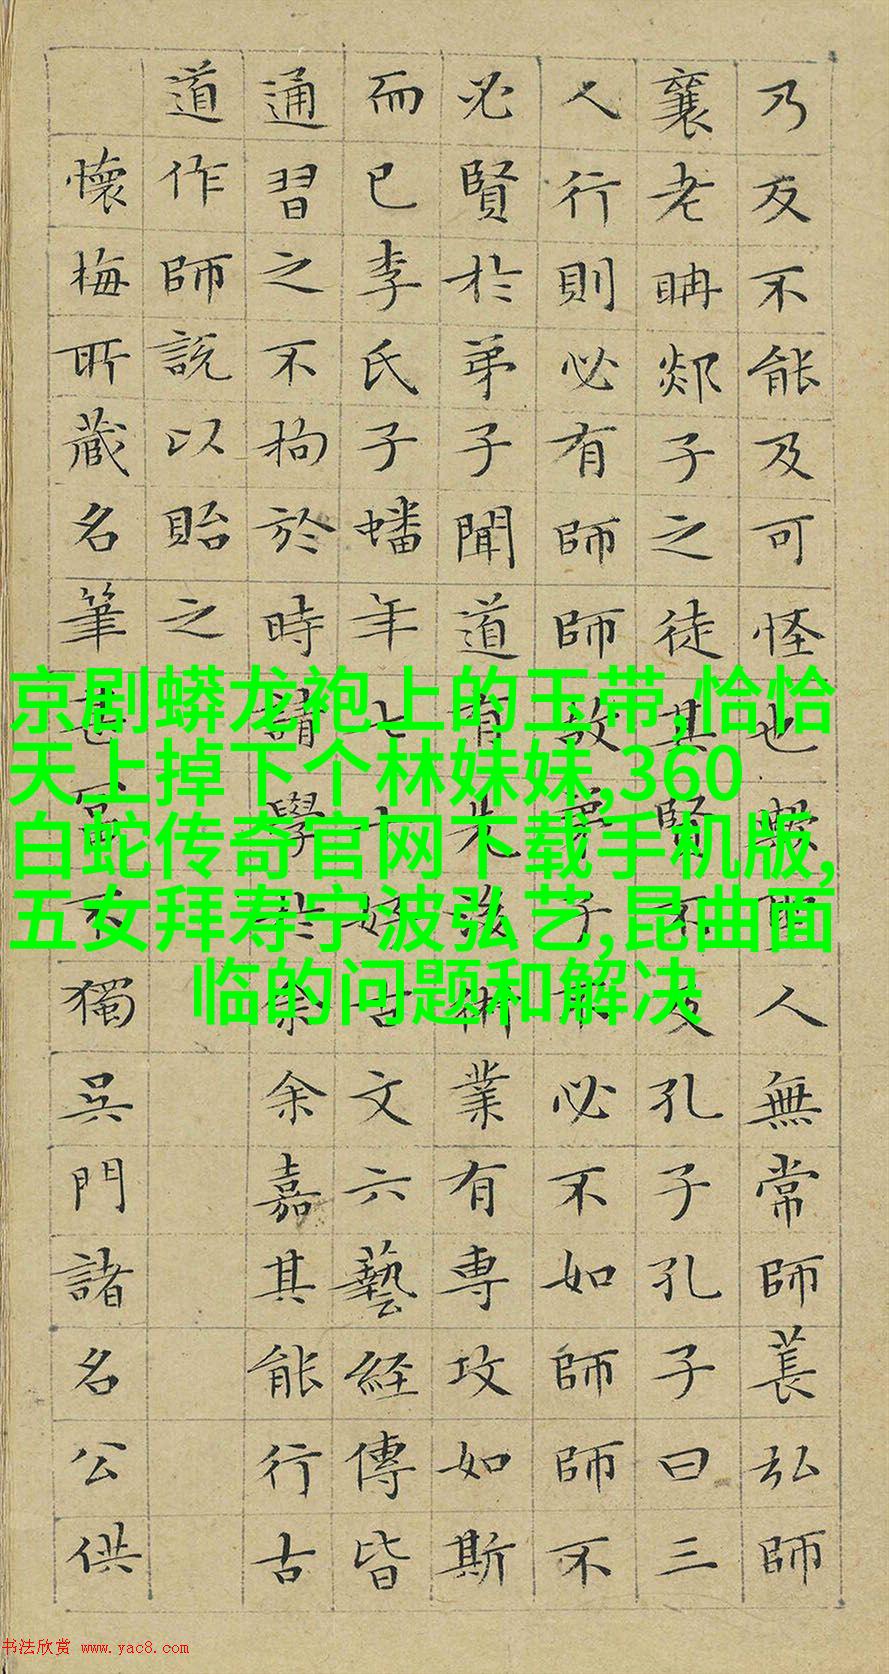 乃反不能及可怪也歟聖人無常師萇弘師
襄老聃郯子之徒其賢不及孔子孔子曰三
人行則必有師師故弟子不必不如師師不
必賢於弟子聞道有先後術業有専攻如斯
而已李氏子蟠年七十好古文六藝経傳皆
通習之不拘於時請學於余余嘉其能行古
道作師說以貽之
懷梅所藏名筆甚富不獨吳門諸名公供
京剧蟒龙袍上的玉带,恰恰
天上掉下个林妹妹,360
白蛇传奇官网下载手机版,
五女拜寿宁波弘艺,昆曲面
临的问题和解决
书法欣赏 www.yac8.com